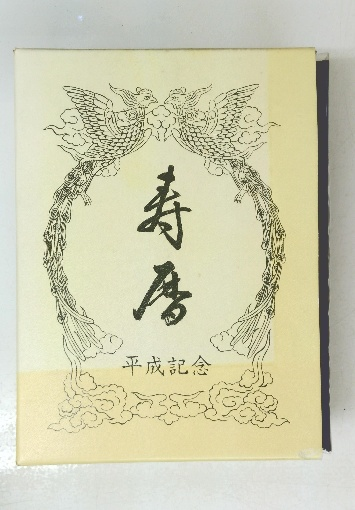 寿
暦
平成記念